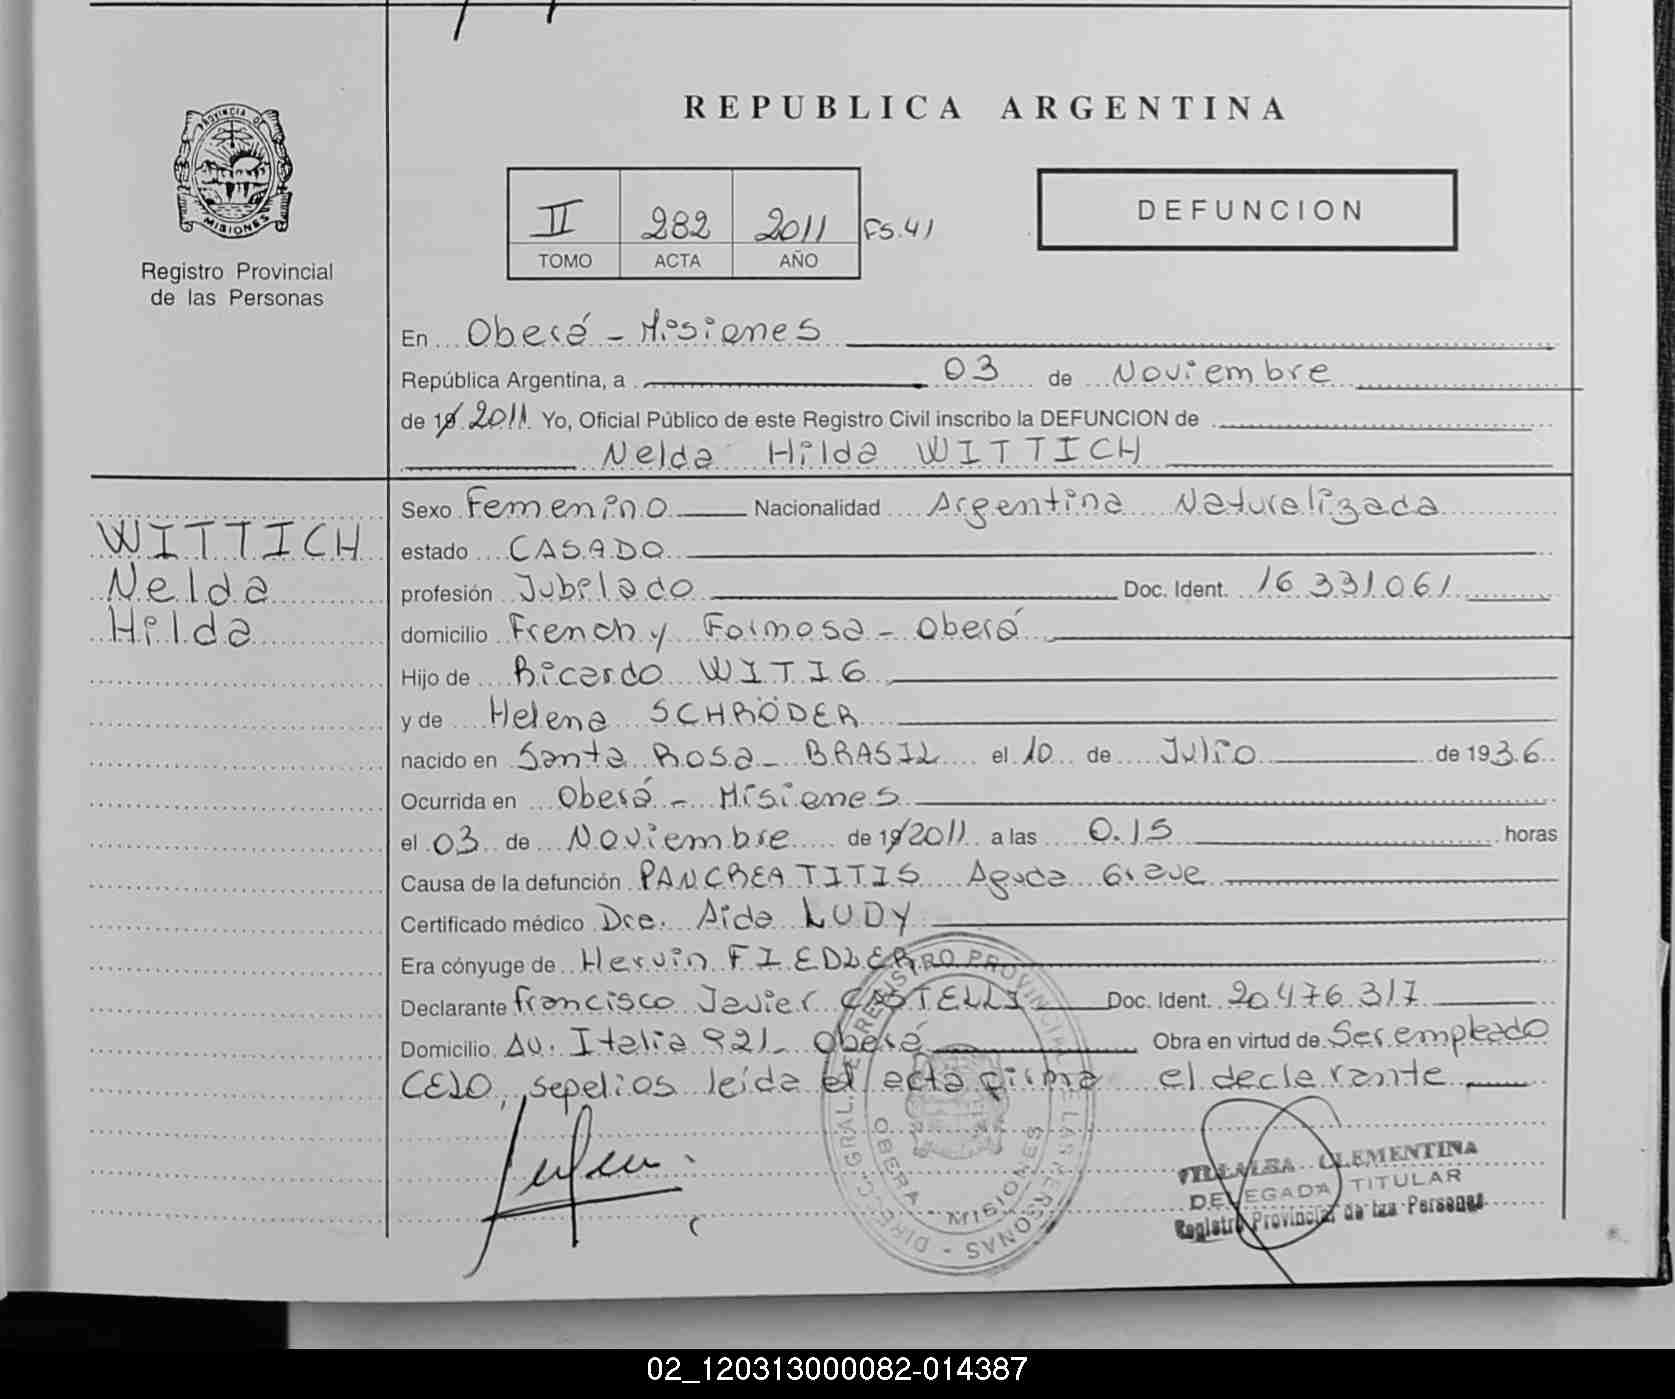 REPUBLICA ARGENTINA
PROVINCIA DE
MISIONES
Registro Provincial
de las Personas
II 282 2011 FS.41
TOMO ACTA AÑO
DEFUNCION
En Oberá - Misiones
República Argentina, a 03 de Noviembre
de 19 2011 Yo, Oficial Público de este Registro Civil inscribo la DEFUNCION de
Nelda Hilda WITTICH
WITTICH
Nelda
Hilda
Sexo Femenino Nacionalidad Argentina Naturalizada
estado CASADO
profesión Jubilado Doc. Ident. 16.331.061
domicilio French y Formosa - Oberá
Hijo de Ricardo WITIG
y de Helena SCHRÖDER
nacido en Santa Rosa - BRASIL el 10 de Julio de 1936
Ocurrida en Oberá - Misiones
el 03 de Noviembre de 19 2011 a las 0.15 horas
Causa de la defunción PANCREATITIS Aguda Grave
Certificado médico Dra. Aida LUDY
Era cónyuge de Hervin FIEDLER
Declarante Francisco Javier CASTELLI Doc. Ident. 20.476.317
Domicilio Av. Italia 921 - Oberá Obra en virtud de Ser empleado
CELO, sepelios leída el acta firma el declarante
DIRECC. GRAL. DE REGISTRO PROVINCIAL DE LAS PERSONAS
OBERA - MISIONES
VILLALBA CLEMENTINA
DELEGADA TITULAR
Registro Provincial de las Personas
02_120313000082-014387